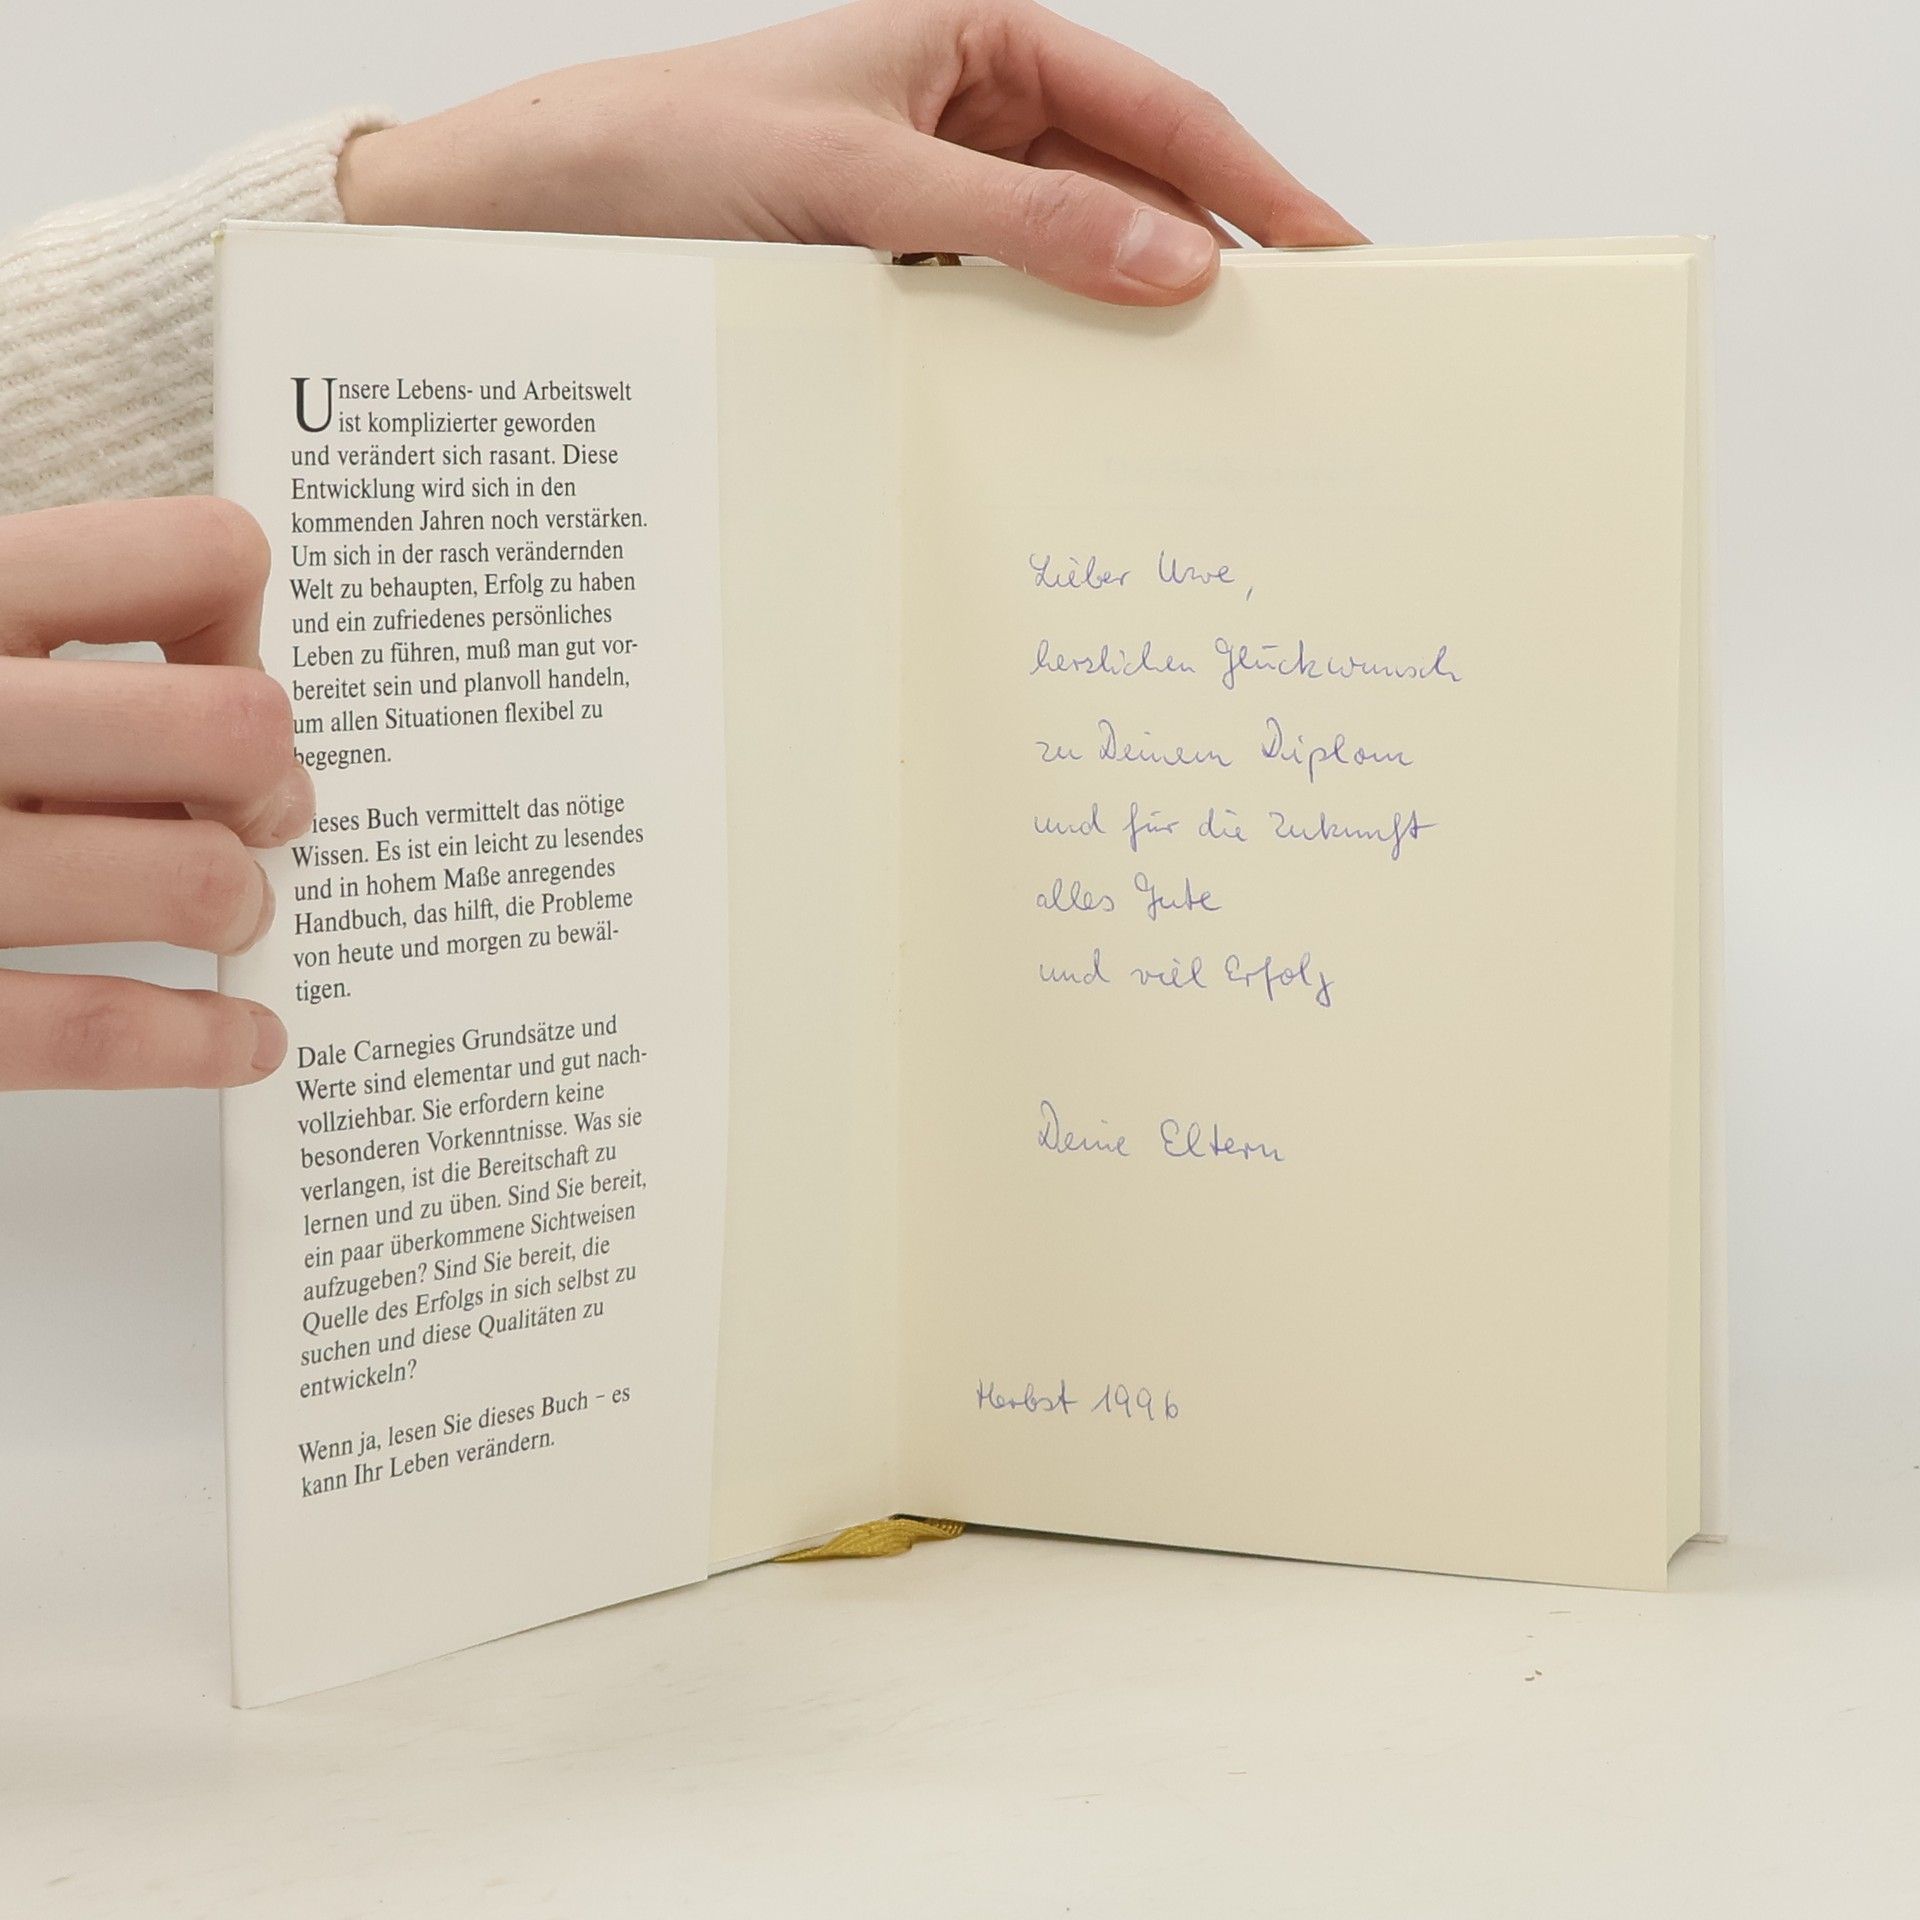 Unsere Lebens- und Arbeitswelt
ist komplizierter geworden
und verändert sich rasant. Diese
Entwicklung wird sich in den
kommenden Jahren noch verstärken.
Um sich in der rasch verändernden
Welt zu behaupten, Erfolg zu haben
und ein zufriedenes persönliches
Leben zu führen, muß man gut vor-
bereitet sein und planvoll handeln,
um allen Situationen flexibel zu
begegnen.
Dieses Buch vermittelt das nötige
Wissen. Es ist ein leicht zu lesendes
und in hohem Maße anregendes
Handbuch, das hilft, die Probleme
von heute und morgen zu bewäl-
tigen.
Dale Carnegies Grundsätze und
Werte sind elementar und gut nach-
vollziehbar. Sie erfordern keine
besonderen Vorkenntnisse. Was sie
verlangen, ist die Bereitschaft zu
lernen und zu üben. Sind Sie bereit,
ein paar überkommene Sichtweisen
aufzugeben? Sind Sie bereit, die
Quelle des Erfolgs in sich selbst zu
suchen und diese Qualitäten zu
entwickeln?
Wenn ja, lesen Sie dieses Buch – es
kann Ihr Leben verändern.
Lieber Uwe,
herzlichen Glückwunsch
zu Deinem Diplom
und für die Zukunft
alles Gute
und viel Erfolg
Deine Eltern
Herbst 1996